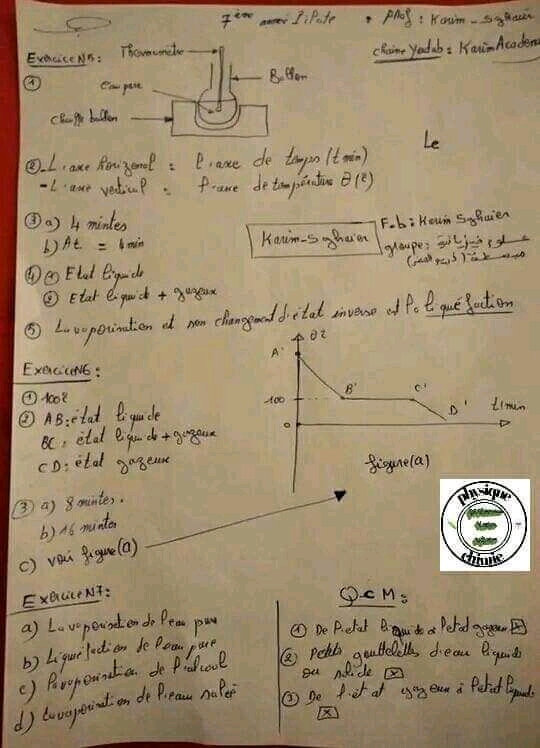 7ème année Pilote . Prof : Karim - Sghaier
chaine Youtub : Karim Academ
Exercice N5 : Thermomètre
①
Ballon
eau pure
chauffe ballon
Le
② - L'axe horizonal = l'axe de temps (t min)
- L'axe vertical = l'axe de température θ(°C)
③ a) 4 mintes
b) Δt = 4 min
Karim - Sghaier
F.b : Karim Sghaier
groupe :
④ ① Etat liquide
② Etat liquide + gazeux
⑤ La vaporisation et son changement d'état inverse est la liquéfaction
Exercice N6 :
① 100°C
② AB : état liquide
BC : état liquide + gazeux
CD : état gazeux
θ °C
A'
B'
C'
D'
100
0
t/min
figure (a)
③ a) 8 mintes .
b) 16 mintes
c) voir figure (a)
physique
chimie
Exercice N7 :
a) La vaporisation de l'eau pure
b) Liquéfaction de l'eau pure
c) la vaporisation de l'alcool
d) La vaporisation de l'eau salée
Q.C.M :
① De l'état liquide à l'état gazeux ☒
② Petits gouttelettes d'eau liquide
ou solide ☒
③ De l'état gazeux à l'état liquide
☒